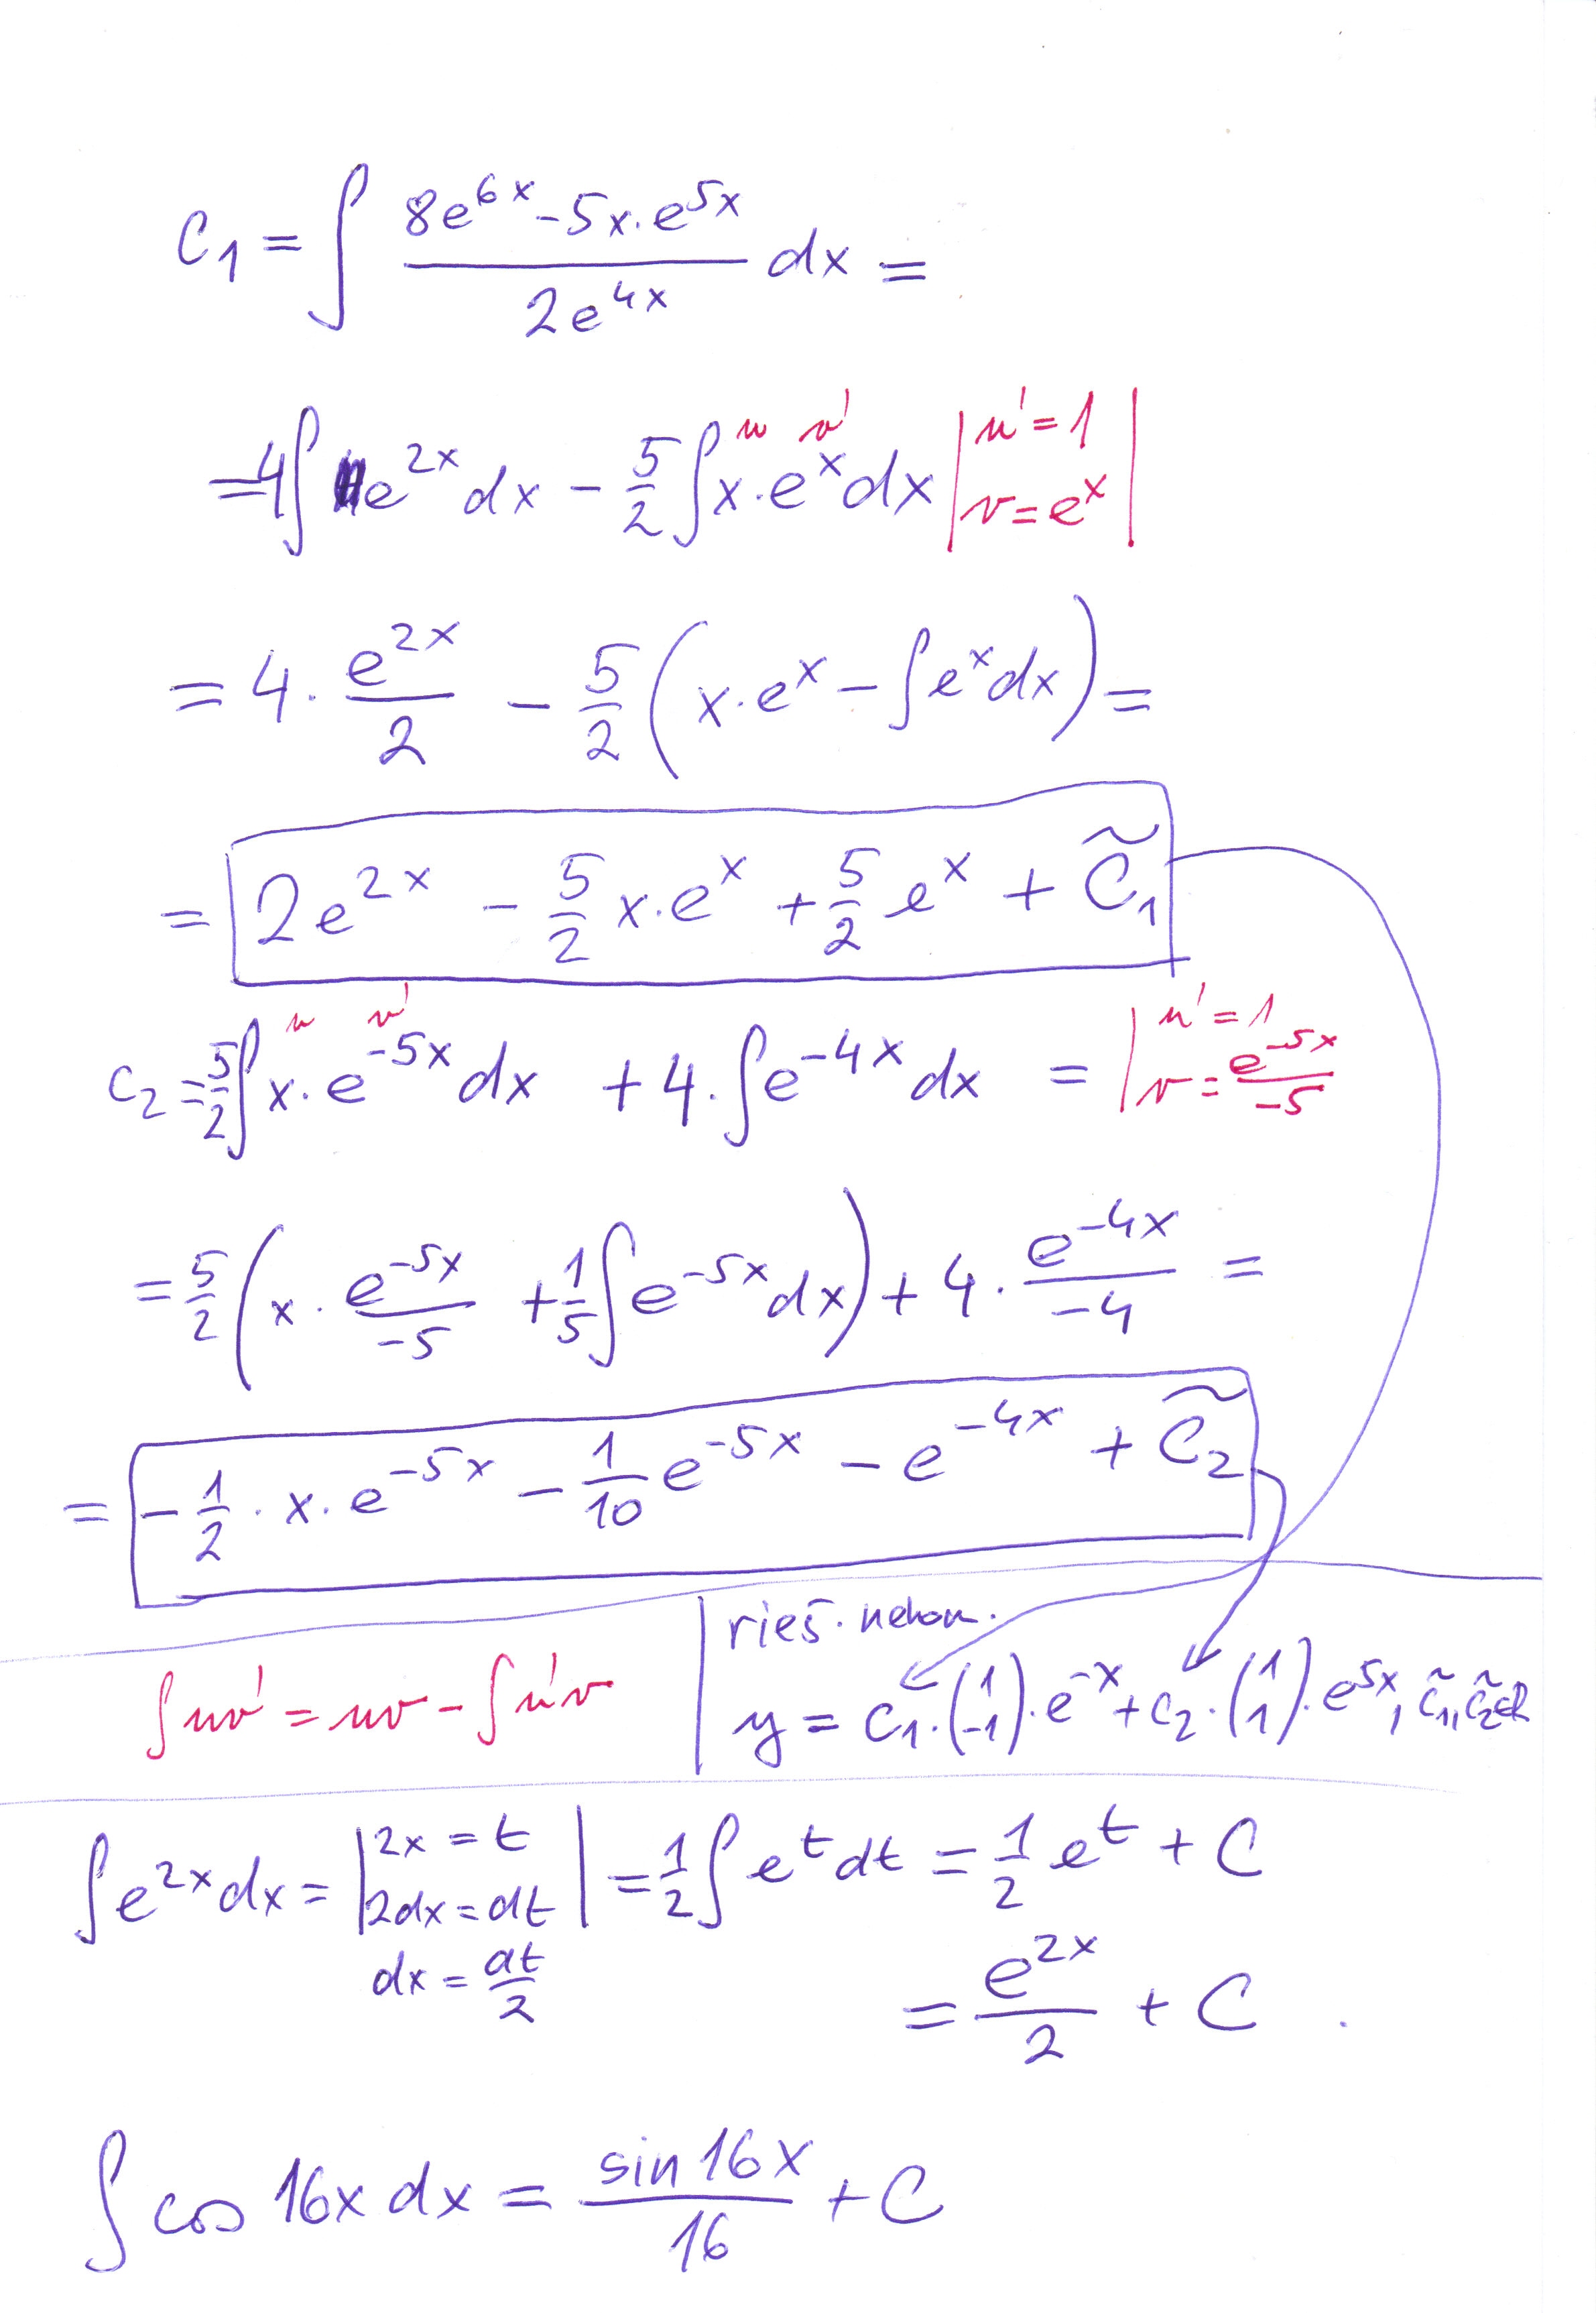 C₁ = ∫ (8e^{6x} - 5x·e^{5x}) / (2e^{4x}) dx =
= 4∫ e^{2x} dx - 5/2 ∫ x·e^x dx | u' = 1
u v' v = e^x |
= 4 · e^{2x}/2 - 5/2 (x·e^x - ∫e^x dx) =
= 2e^{2x} - 5/2 x·e^x + 5/2 e^x + C̃₁
u v' | u' = 1
C₂ = 5/2 ∫ x·e^{-5x} dx + 4·∫e^{-4x} dx = | v = e^{-5x}/-5
= 5/2 (x · e^{-5x}/-5 + 1/5 ∫e^{-5x} dx) + 4 · e^{-4x}/-4 =
= -1/2 · x · e^{-5x} - 1/10 e^{-5x} - e^{-4x} + C̃₂
∫uv' = uv - ∫u'v
rieš. nehom.
y = C₁·(1 -1)·e^{-x} + C₂·(1 1)·e^{5x}, C̃₁, C̃₂∈R
∫e^{2x} dx = | 2x = t | = 1/2 ∫ e^t dt = 1/2 e^t + C
2dx = dt
dx = dt/2
= e^{2x}/2 + C .
∫ cos 16x dx = sin 16x / 16 + C